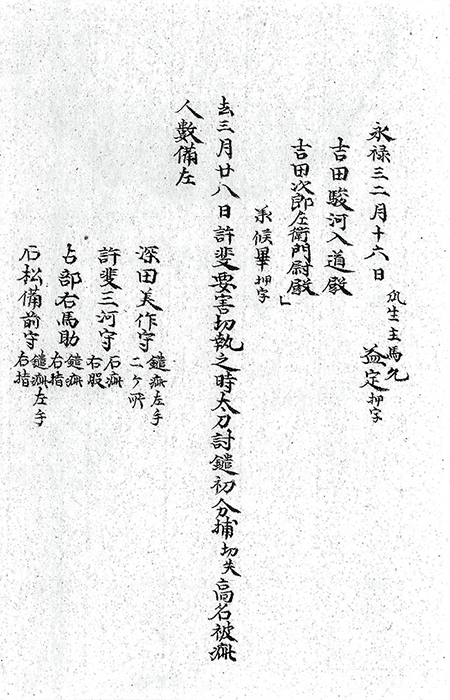 永禄三二月十六日 瓜生主馬允 益定 押字
吉田駿河入道殿
吉田次郎左衛門尉殿」
承候畢 押字
去三月廿八日許斐要害切執之時太刀討鑓初分捕切失高名被疵
人數備左
深田美作守 鑓疵左手
二ヶ所
許斐三河守 石疵
右股
占部右馬助 鑓疵
右指
石松備前守 鑓疵左手
右指